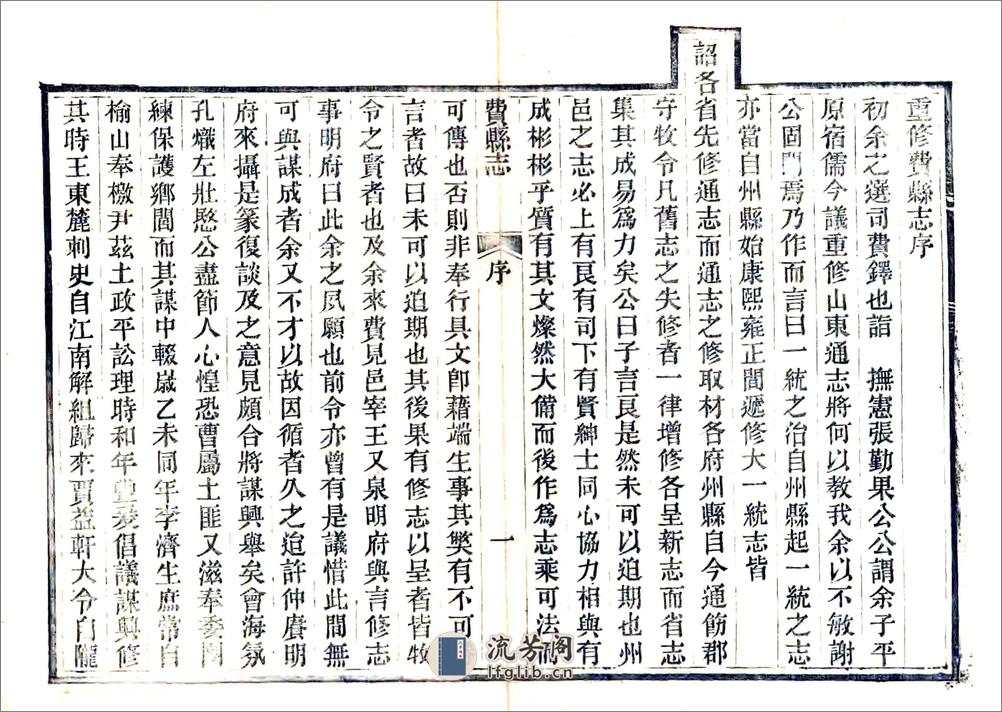 重修費縣志序
初余之選司費鐸也詣　撫憲張勤果公公謂余子平
原宿儒今議重修山東通志將何以教我余以不敏謝
公固問焉乃作而言曰一統之治自州縣起一統之志
亦當自州縣始康熙雍正間遞修大一統志皆
詔各省先修通志而通志之修取材各府州縣自今通飭郡
守牧令凡舊志之失修者一律增修各呈新志而省志
集其成易爲力矣公曰子言良是然未可以迫期也州
邑之志必上有良有司下有賢紳士同心協力相與有
成彬彬乎質有其文燦然大備而後作爲志乘可法而
費縣志
序
一
可傳也否則非奉行具文卽藉端生事其獘有不可
言者故曰未可以迫期也其後果有修志以呈者皆牧
令之賢者也及余來費見邑宰王又泉明府與言修志
事明府曰此余之夙願也前令亦曾有是議惜此間無
可與謀成者余又不才以故因循者久之迨許仲賡明
府來攝是篆復談及之意見頗合將謀興舉矣會海氛
孔熾左壯愍公盡節人心惶恐曹屬土匪又滋奉委團
練保護鄉閭而其謀中輟歲乙未同年李濟生庶常自
榆山奉檄尹茲土政平訟理時和年豐爰倡議謀興修
其時王東麓刺史自江南解組歸來賈益軒大令自隴
流芳閣
lfglib.cn